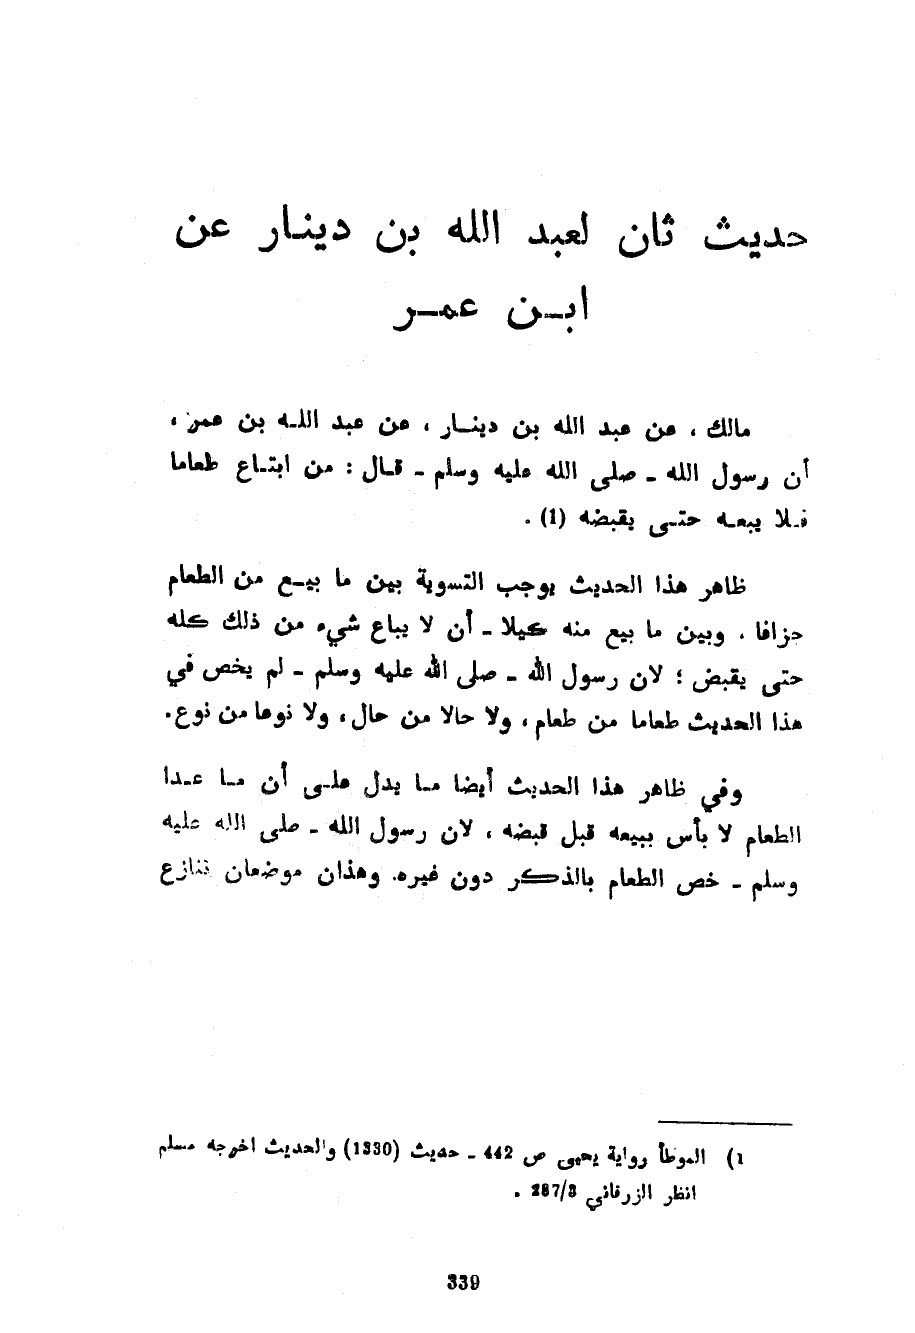 حديث ثان لعبد الله بن دينـار عن
ابــن عمــر
مالك ، عن عبد الله بن دينـار ، عن عبد اللـه بن عمر ،
أن رسول الله ـ صلى الله عليه وسلم ـ قـال : من ابتـاع طعاما
فـلا يبعـه حتـى يقبضه (1) .
ظاهر هذا الحديث يوجب التسوية بين ما بيـع من الطعام
جزافا ، وبين ما بيع منه كيلا ـ أن لا يباع شيء من ذلك كله
حتى يقبض ؛ لان رسول الله ـ صلى الله عليه وسلم ـ لم يخص في
هذا الحديث طعاما من طعام ، ولا حالا من حال ، ولا نوعا من نوع.
وفي ظاهر هذا الحديث أيضا مـا يدل علـى أن مـا عـدا
الطعام لا بأس ببيعه قبل قبضه ، لان رسول الله ـ صلى الله عليه
وسلم ـ خص الطعام بالذكر دون غيره. وهذان موضعان تنازع
1) الموطأ رواية يحيى ص 442 ـ حديث (1330) والحديث اخرجه مسلم
انظر الزرقاني 287/3 .
339